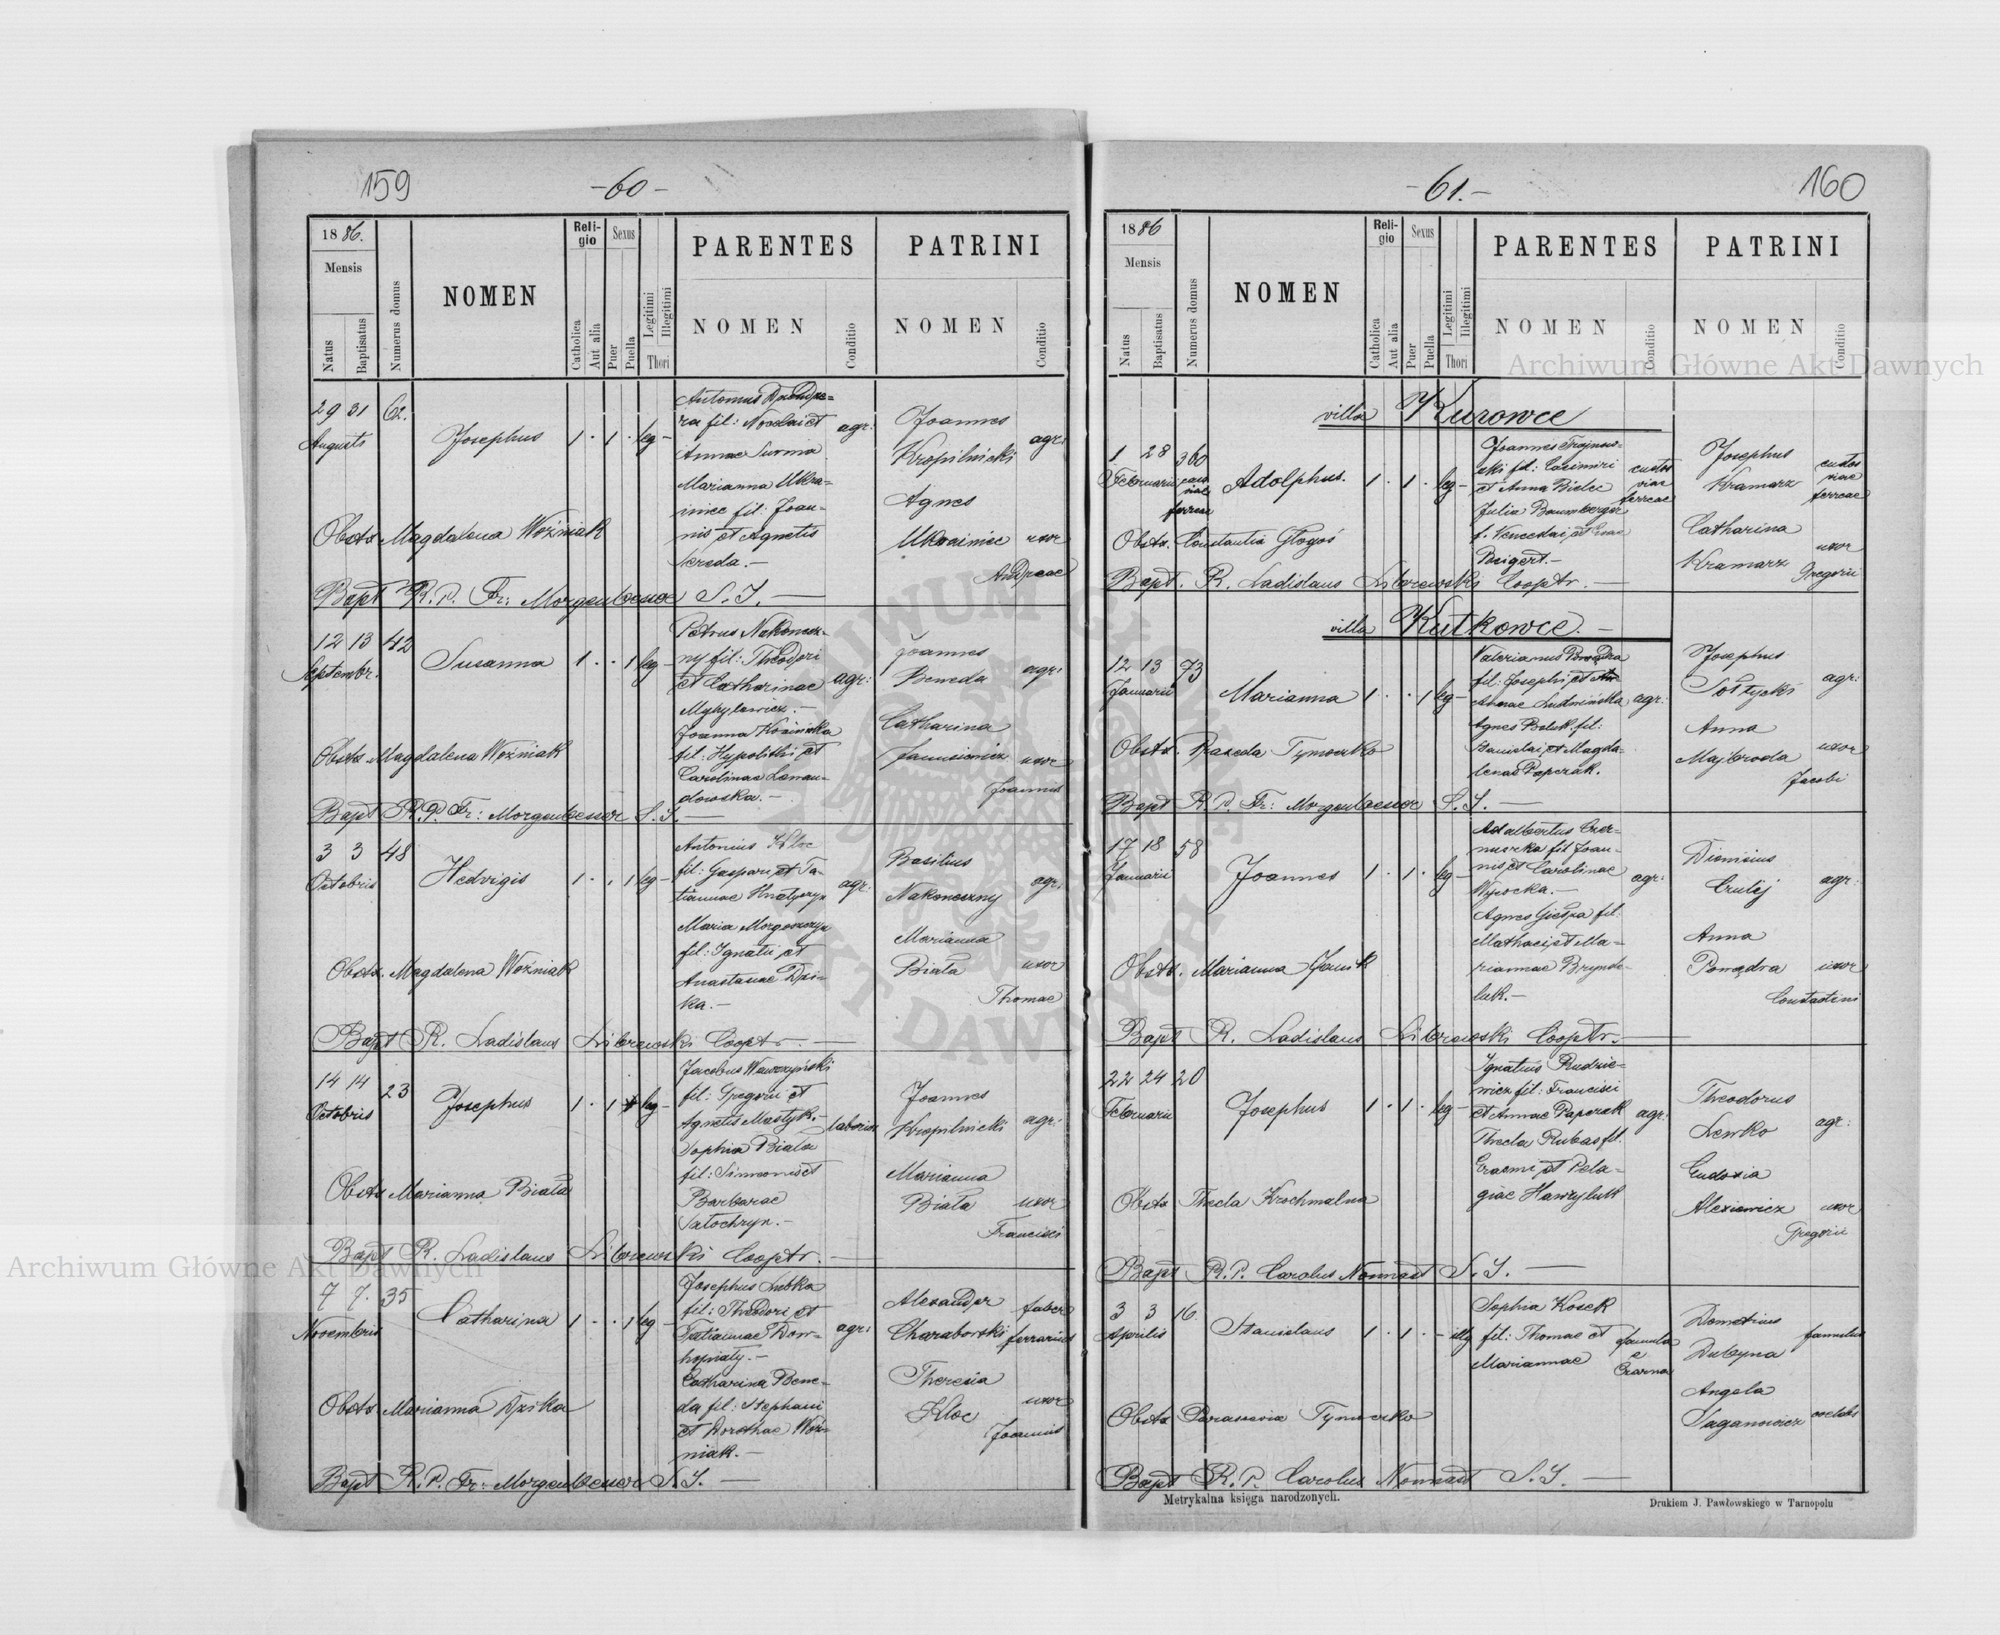 159
-60-
1886.
Mensis
Natus
Baptisatus
Numerus domus
NOMEN
Religio
Catholica
Aut alia
Sexus
Puer
Puella
Legitimi
Illegitimi
Thori
PARENTES
NOMEN
Conditio
PATRINI
NOMEN
Conditio
29 31 62.
Augusti
Josephus 1 . 1 . leg-
ra fil: Nicolai et
Annae Surma
Marianna Ukra-
iniec fil: Joan-
nis et Agnetis
Sereda.-
agr:
Joannes
Kropilnicki agr:
Agnes
Ukrainiec uxor
Andreae
Obstx Magdalena Woźniak
Bapt R. P. Fr: Morgenbesser S. J.
12 13 42
Septembr.
Susanna 1 . . 1 leg-
Petrus Nakonecz-
ny fil: Theodori
et Catharinae
Myhylewicz.-
Joanna Kosińska
fil: Hypolithi et
Carolinae Lewan-
dowska.-
agr:
Joannes
Beneda agr:
Catharina
uxor
Joannis
Obstx Magdalena Woźniak
Bapt R. P. Fr: Morgenbesser S. J.
3 3 48
Octobris
Hedvigis 1 . . 1 leg-
Antonius Kloc
fil: Gaspari et Ta-
tiannae
Maria
fil: Ignatii et
Anastasiae Dzi-
ka.-
agr:
Basilius
Nakoneczny agr:
Marianna
Biała uxor
Thomae
Obstx. Magdalena Woźniak
Bapt R. Ladislaus Librewski Cooptr.
14 14 23
Octobris
Josephus 1 . 1 leg-
Jacobus Wawrzyński
fil: Gregorii et
Agnetis Mastyk.-
Sophia Biała
fil: Simeonis et
Barbarae
Satochryn.-
Joannes
Kropilnicki agr:
Marianna
Biała uxor
Francisci
Obstx Marianna Biała
Bapt R. Ladislaus Librewski Cooptr.
7 7. 35
Novembris
Catharina 1 . . 1 leg-
Josephus Lubka
fil: Theodori et
Tatiannae Dow-
hopiaty.-
Catharina Bene-
da fil: Stephani
et Dorotheae Woź-
niak.-
agr:
Alexander faber
Charaborski ferrarius
Theresia
Kloc uxor
Joannis
Obstx Marianna Dzika
Bapt R. P. Fr: Morgenbesser S. J.
-61.-
160
1886
Mensis
Natus
Baptisatus
Numerus domus
NOMEN
Religio
Catholica
Aut alia
Sexus
Puer
Puella
Legitimi
Illegitimi
Thori
PARENTES
NOMEN
Conditio
PATRINI
NOMEN
Conditio
villa Kurowce
1 28 360
Februarii
Adolphus. 1 . 1 . leg-
Joannes Trojnow-
ski fil: Casimiri
et Anna Bielec
Julia Baumberger
Beigert.-
custos
viae
ferreae
Josephus
Kramarz
custos
viae
ferreae
Catharina
Kramarz uxor
Gregorii
Obstx. Constantia Głogoś
Bapt. R. Ladislaus Librewski Cooptr.
villa Kutkowce.-
12 13 73
Januarii
Marianna 1 . . 1 leg-
fil: Josephi et
Annae Ludwińska
Agnes Bałuk fil:
Stanislai et Magda-
lenae Papczak.
agr:
Josephus
Sołtycki agr:
Anna
Majbroda uxor
Jacobi
Obstx. Praxeda Tymoczko
Bapt R. P. Fr: Morgenbesser S. J.
17 18 58
Januarii
Joannes 1 . 1 . leg-
Adalbertus Czer-
niuszka fil: Joan-
nis et Carolinae
Wysocka.-
Agnes Giełza fil:
Mathaei et Ma-
riannae Brynde-
luk.-
agr:
Dionisius
Culij agr:
Anna
Ponędra uxor
Constantini
Obstx. Marianna Janik
Bapt R. Ladislaus Librewski Cooptr.
22 24 20
Februarii
Josephus 1 . 1 . leg-
Ignatius Rudzie-
wicz fil: Francisci
et Annae Papczak
Thecla Rubas fil.
Erasmi et Pela-
giae Hawryluk
agr:
Theodorus
Lewko agr:
Eudoxia
Alexiewicz uxor
Gregorii
Obstx Thecla Krochmalna
Bapt R. P. Carolus Nonnast S. J.
3 3 16
Aprilis
Stanislaus 1 . 1 . - illg
Sophia Kosek
fil: Thomae et
Mariannae
famula
e
Czarna
Demetrius
Dubyna famulus
Angela
Saganowicz coelebs
Obstx Parascevia Tymoczko
Bapt R. P. Carolus Nonnast S. J.
Metrykalna księga narodzonych.
Drukiem J. Pawłowskiego w Tarnopolu
Archiwum Główne Akt Dawnych
Archiwum Główne Akt Dawnych